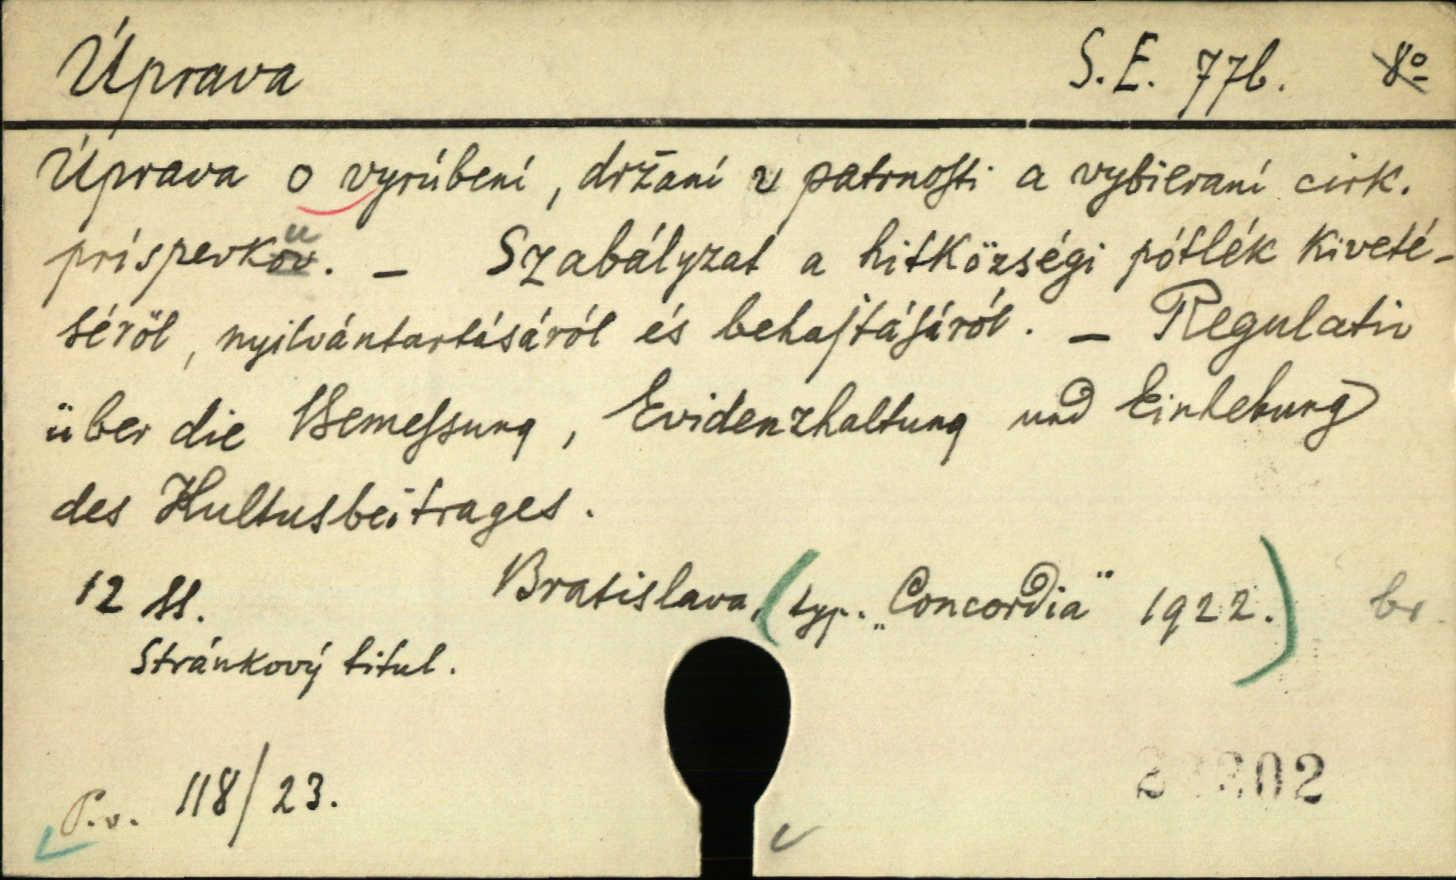 Úprava S. E. 77b. 8º
Úprava o vyrúbení, držaní v patrnosti a vybieraní cirk.
príspevkov. u — Szabályzat a hitközségi pótlék kiveté-
séről, nyilvántartásáról és behajtásáról. — Regulativ
über die Bemessung, Evidenzhaltung und Einhebung
des Kultusbeitrages.
12 ss. Bratislava, (typ. „Concordia" 1922.) br.
Stránkový titul.
P.v. 118/23.